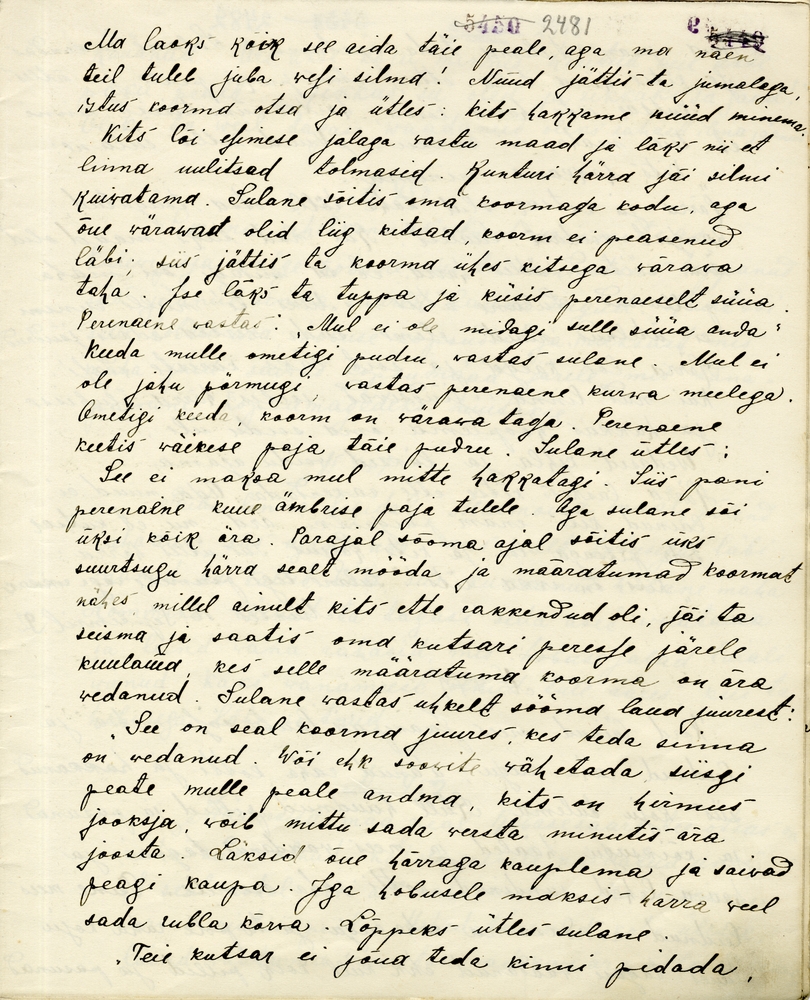 5450 2481
Ma laoks kõik see aida täie peale, aga ma näen
teil tuleb juba wesi silma! Nüüd jättis ta jumalaga,
istus koorma otsa ja ütles: kits hakkame nüüd minema.
Kits lõi esimese jalaga wastu maad ja läks nii et
linna uulitsad tolmasid. Kunturi härra jäi silmi
kuiwatama. Sulane sõitis oma koormaga kodu, aga
õue wärawad olid liig kitsad, koorm ei peasenud
läbi; siis jättis ta koorma ühes kitsega wärawa
taha. Ise läks ta tuppa ja küsis perenaeselt süüa.
Perenaene wastas: „Mul ei ole midagi sulle süüa anda"
Keeda mulle ometigi pudru, wastas sulane. Mul ei
ole jahu põrmugi, wastas perenaene kurwa meelega.
Ometigi keeda, koorm on wärawa taga. Perenaene
keetis wäikese paja täie pudru. Sulane ütles:
See ei maksa mul mitte hakkatagi. Siis pani
perenaene kuue ämbrise paja tulele. Aga sulane sõi
üksi kõik ära. Parajal sööma ajal sõitis üks
suurtsugu härra sealt mööda ja määratumad koormat
nähes, millel ainult kits ette rakkendud oli, jäi ta
seisma ja saatis oma kutsari peresse järele
kuulama, kes selle määratuma koorma on ära
wedanud. Sulane wastas uhkelt sööma laud juurest:
„See on seal koorma juures, kes teda sinna
on wedanud. Wõi ehk soowite wähetada, siisgi
peate mulle peale andma, kits on hirmus
jooksja, wõib mittu sada wersta minutis ära
joosta. Läksid õue härraga kauplema ja saiwad
peagi kaupa. Iga hobusele maksis härra weel
sada rubla kõrwa. Lõppeks ütles sulane.
„Teie kutsar ei jõua teda kinni pidada,